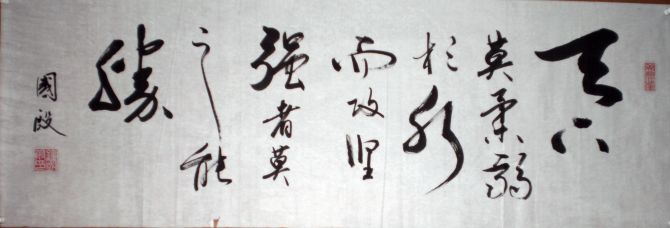 天下
莫柔弱
於水
而攻坚
强者莫
之能
勝
國